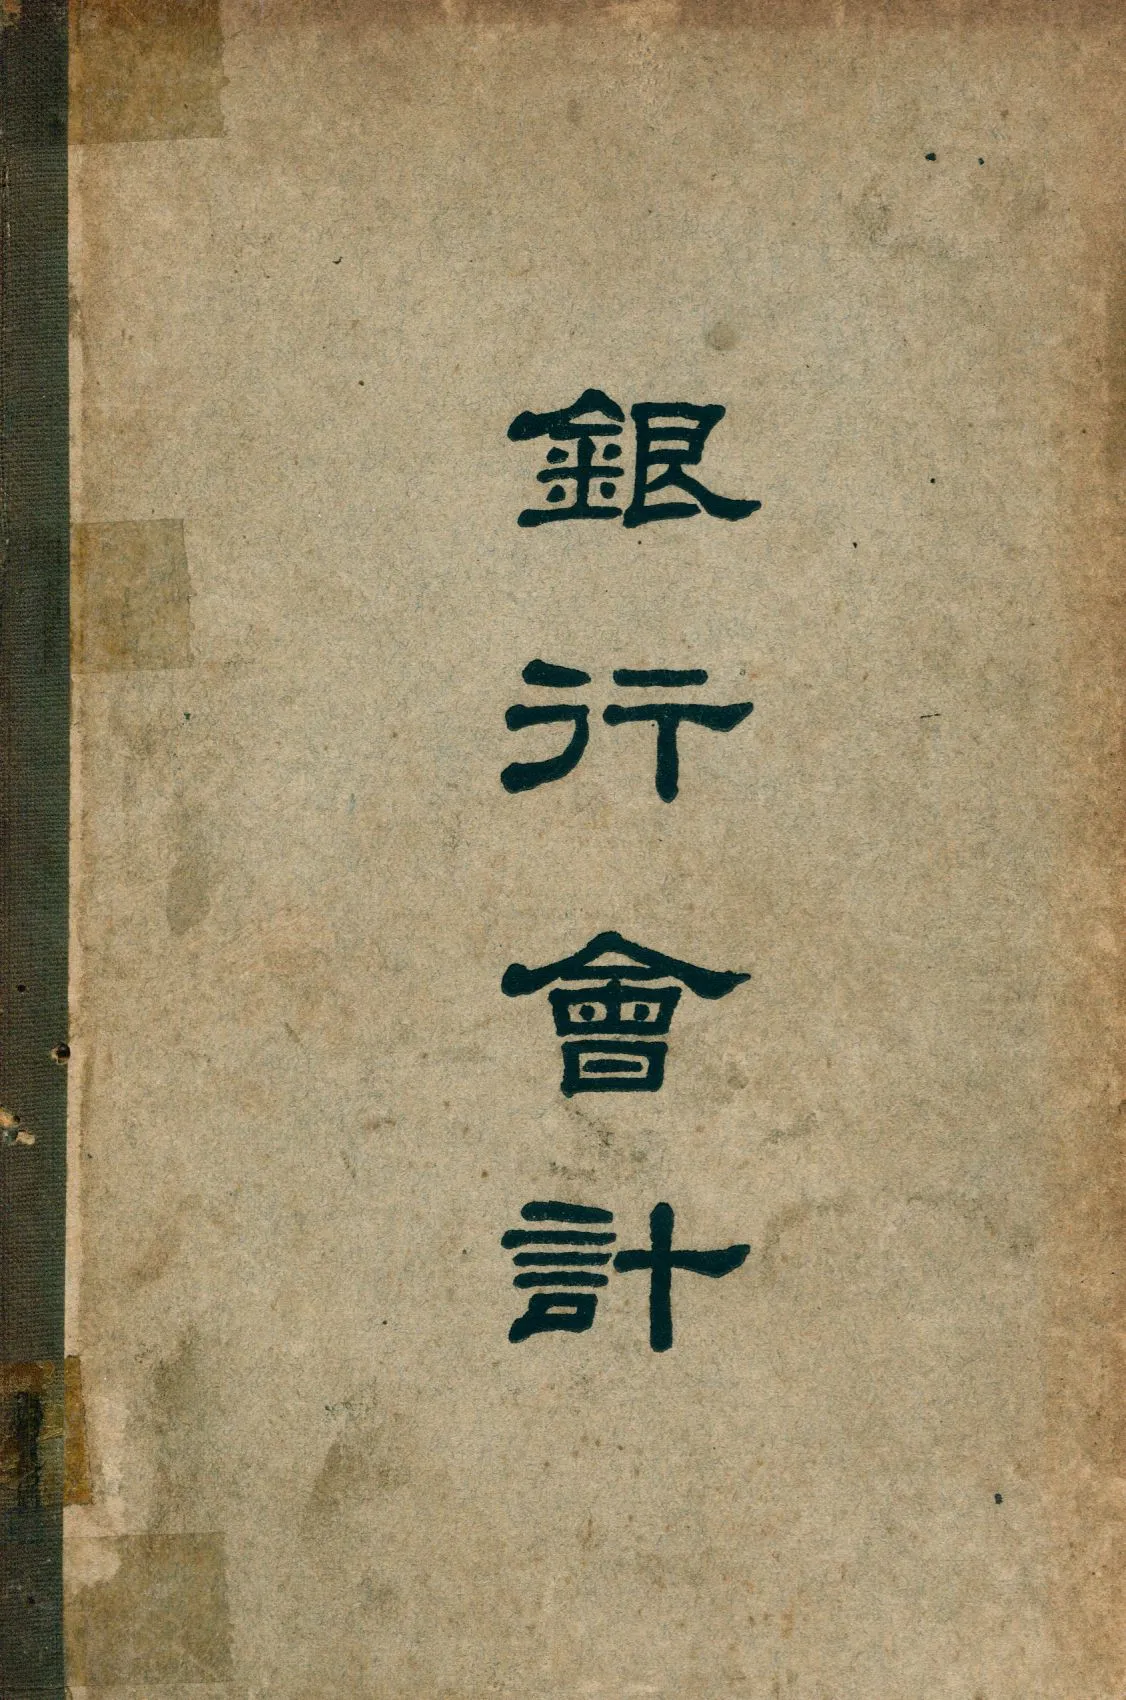 銀行會計